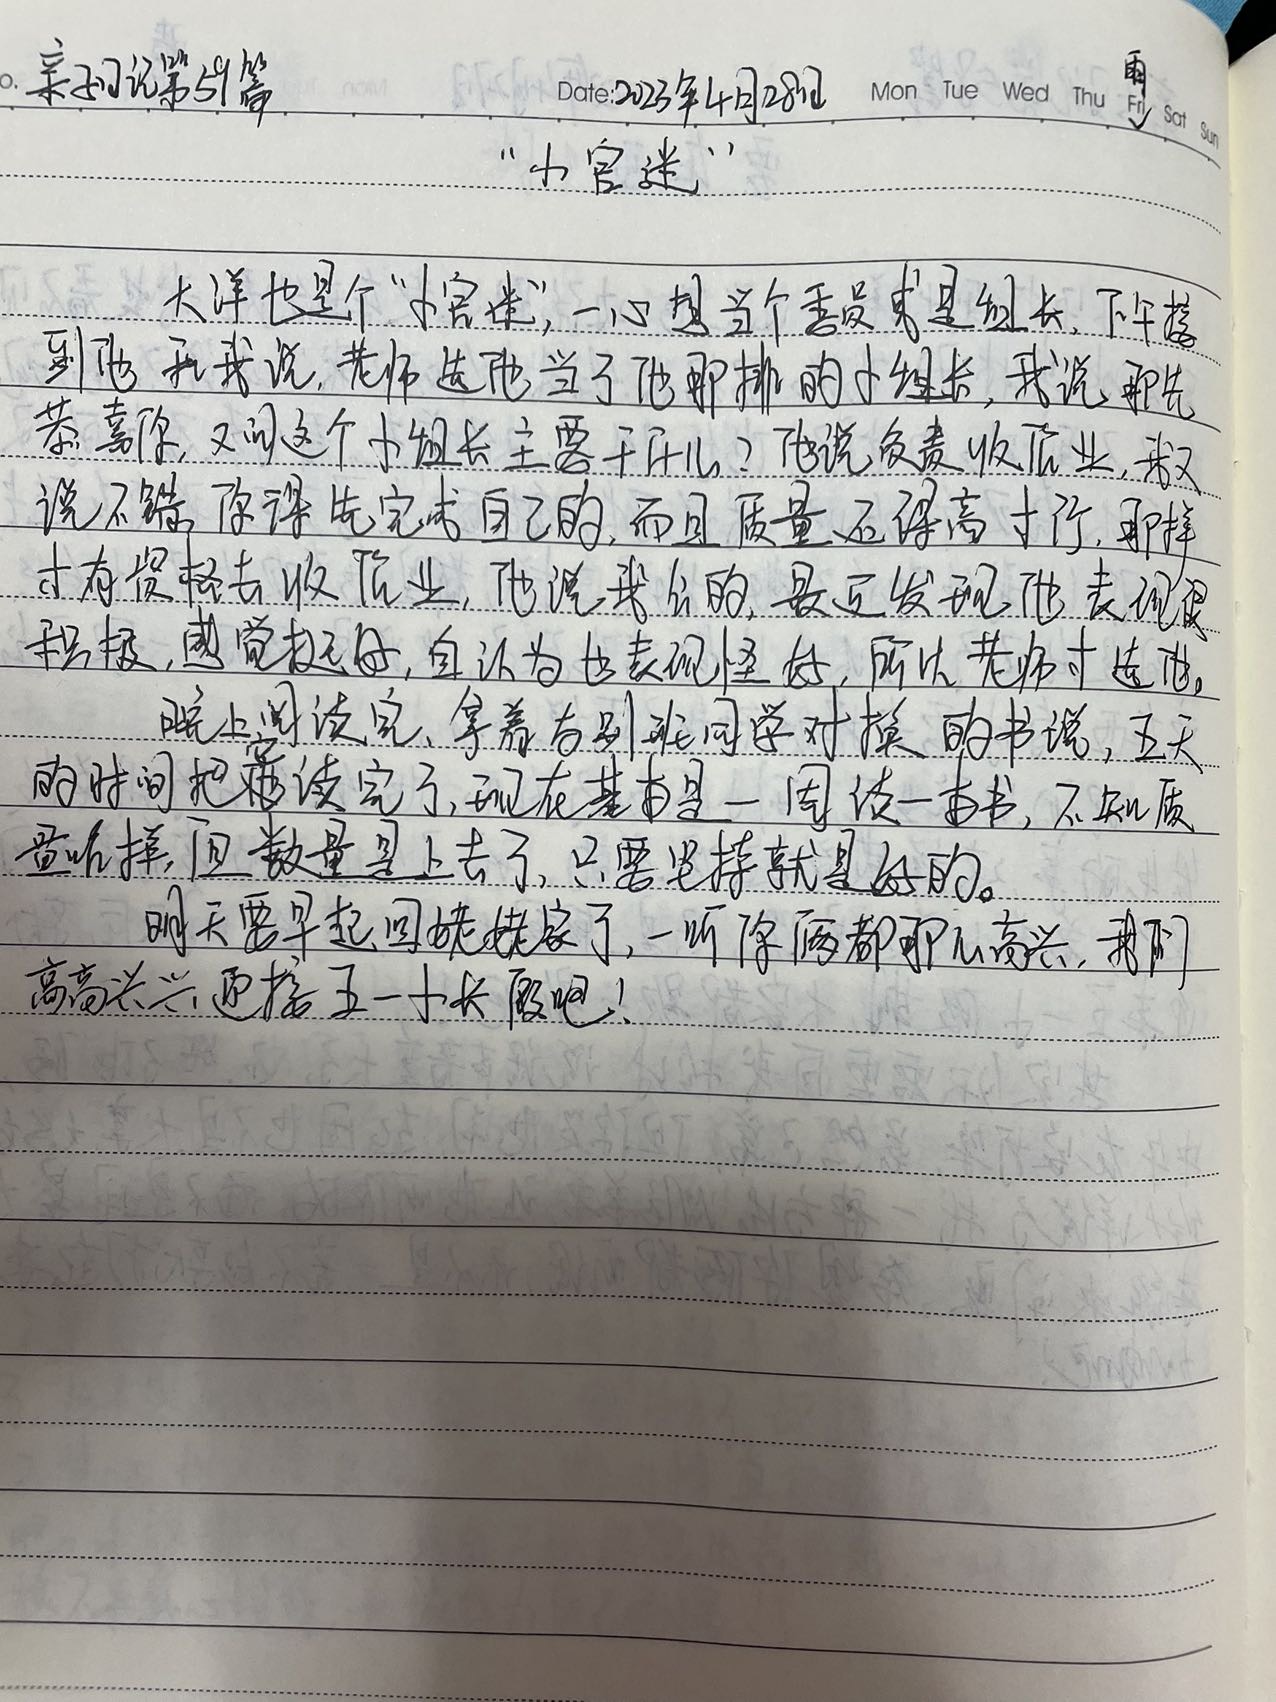 No. 亲子日记第59篇 Date: 2023年4月28日 Mon Tue Wed Thu Fri Sat Sun 雨
“小官迷”
大洋也是个“小官迷”,一心想当个委员或是组长,下午接
到他和我说,老师选他当了他那排的小组长,我说那先
恭喜你,又问这个小组长主要干什么?他说负责收作业,我又
说不错,你得先完成自己的,而且质量还得高才行,那样
才有资格去收作业,他说我会的,最近发现他表现很
积极,感觉挺好,自认为也表现怪好,所以老师才选他。
晚上阅读完,拿着与别班同学对换的书说,五天
的时间把它读完了,现在基本是一周读一本书,不知质
量咋样,但数量是上去了,只要坚持就是好的。
明天要早起回姥姥家了,一听你俩都那么高兴,我们
高高兴兴迎接五一小长假吧!